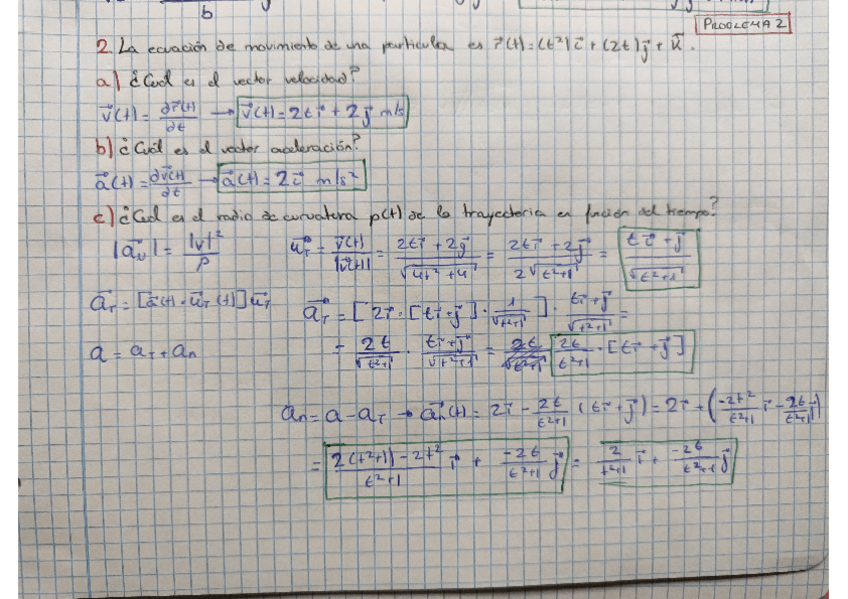 b
PROBLEMA 2
2. La ecuación de movimiento de una partícula es r⃗(t)=(t²)i⃗+(2t)j⃗+k⃗.
a) ¿Cuál es el vector velocidad?
v⃗(t)=∂r⃗(t)/∂t → v⃗(t)=2ti⃗+2j⃗ m/s
b) ¿Cuál es el vector aceleración?
a⃗(t)=∂v⃗(t)/∂t → a⃗(t)=2i⃗ m/s²
c) ¿Cuál es el radio de curvatura ρ(t) de la trayectoria en función del tiempo?
|a⃗N|=|v|²/ρ u⃗T=v⃗(t)/|v⃗(t)|=(2ti⃗+2j⃗)/√(4t²+4)=(2ti⃗+2j⃗)/(2√(t²+1))=(ti⃗+j⃗)/√(t²+1)
a⃗T=[a⃗(t)·u⃗T(t)]u⃗T a⃗T=[2i⃗·[ti⃗+j⃗]·1/√(t²+1)]·(ti⃗+j⃗)/√(t²+1)=
a=aT+an =2t/√(t²+1)·(ti⃗+j⃗)/√(t²+1)=2t/(t²+1)·[ti⃗+j⃗]
an=a-aT→a⃗n(t)=2i⃗-2t/(t²+1)(ti⃗+j⃗)=2i⃗+(-2t²/(t²+1)i⃗-2t/(t²+1)j⃗)
=(2(t²+1)-2t²)/(t²+1)i⃗+(-2t)/(t²+1)j⃗=2/(t²+1)i⃗+(-2t)/(t²+1)j⃗